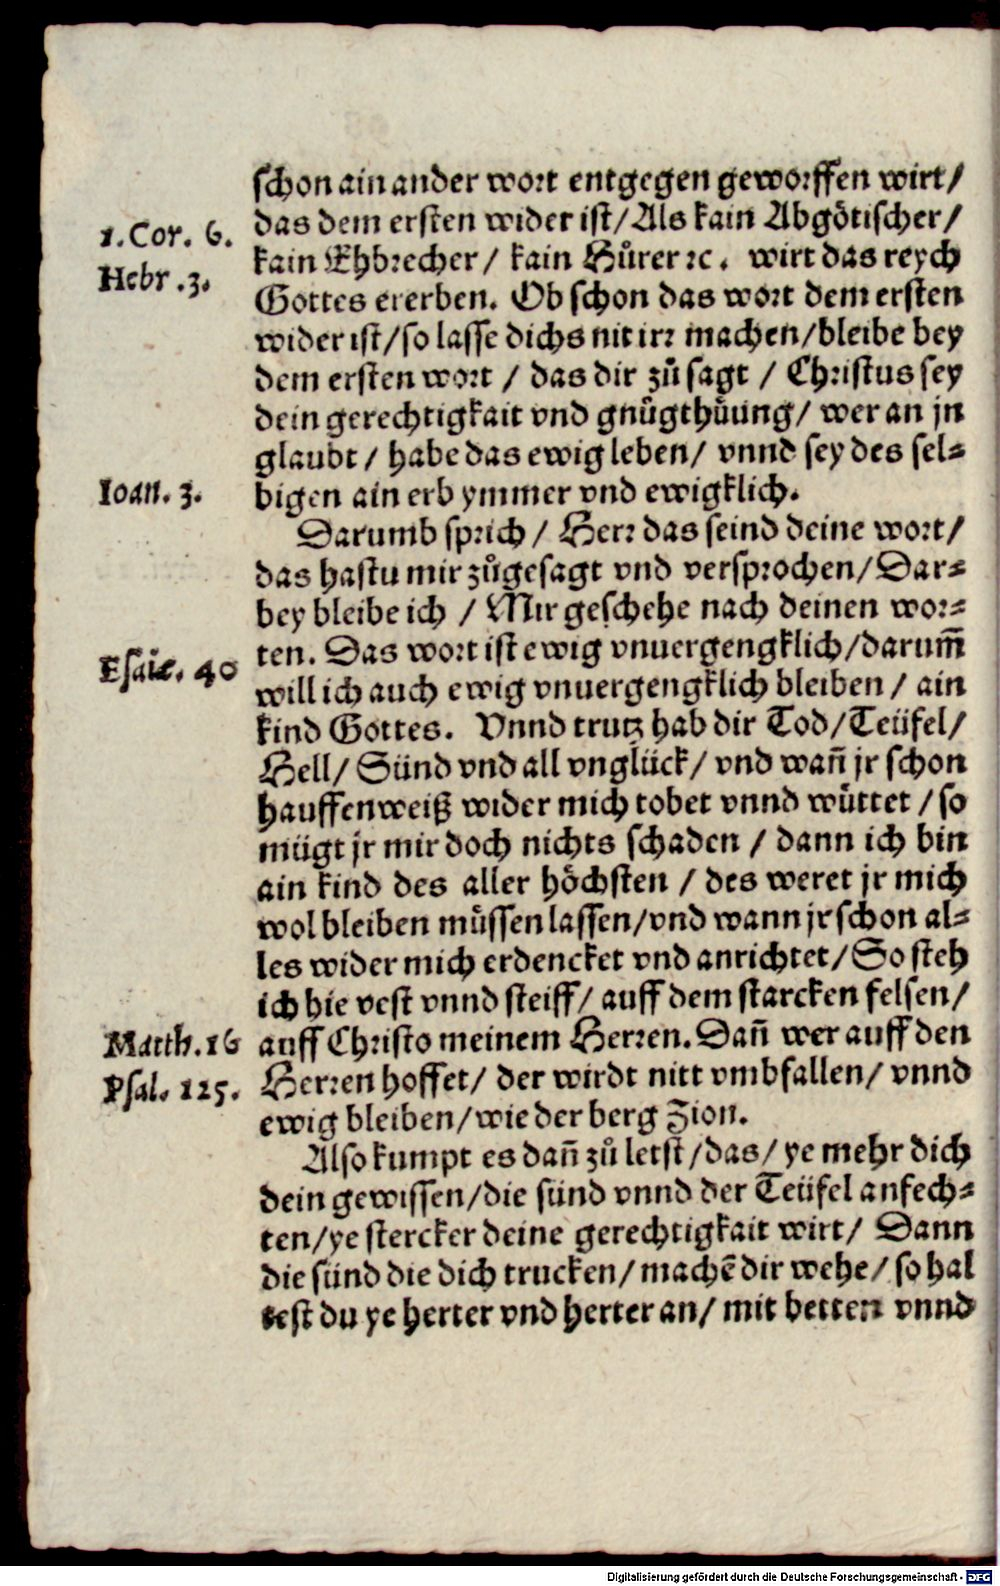 schon ain ander wort entgegen geworffen wirt/
das dem ersten wider ist/Als kain Abgötischer/
1. Cor. 6.
kain Ehbrecher/ kain Hůrer ꝛc. wirt das reych
Hebr. 3.
Gottes ererben. Ob schon das wort dem ersten
wider ist/so lasse dichs nit irr machen/bleibe bey
dem ersten wort / das dir zů sagt / Christus sey
dein gerechtigkait vnd gnůgthůung/ wer an jn
glaubt / habe das ewig leben/ vnnd sey des sel-
Ioan. 3.
bigen ain erb ymmer vnd ewigklich.
Darumb sprich / Herr das seind deine wort/
das hastu mir zůgesagt vnd versprochen/Dar-
bey bleibe ich / Mir geschehe nach deinen wor-
ten. Das wort ist ewig vnuergengklich/darum̃
Esaie. 40
will ich auch ewig vnuergengklich bleiben / ain
kind Gottes. Vnnd trutz hab dir Tod/Teüfel/
Hell/ Sünd vnd all vnglück/ vnd wañ jr schon
hauffenweiß wider mich tobet vnnd wůttet /so
mügt jr mir doch nichts schaden / dann ich bin
ain kind des aller höchsten / des weret jr mich
wol bleiben müssen lassen/vnd wann jr schon al-
les wider mich erdencket vnd anrichtet/So steh
ich hie vest vnnd steiff/ auff dem starcken felsen/
Matth. 16
auff Christo meinem Herren. Dañ wer auff den
Psal. 125.
Herren hoffet/ der wirdt nitt vmbfallen/ vnnd
ewig bleiben/wie der berg Zion.
Also kumpt es dañ zů letst/das/ ye mehr dich
dein gewissen/die sünd vnnd der Teüfel anfech-
ten/ye stercker deine gerechtigkait wirt/ Dann
die sünd die dich trucken/machẽ dir wehe/ so hal
test du ye herter vnd herter an/ mit betten vnnd
Digitalisierung gefördert durch die Deutsche Forschungsgemeinschaft - DFG